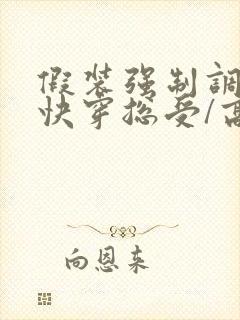 假装强制調
快穿总受/高
向恩来